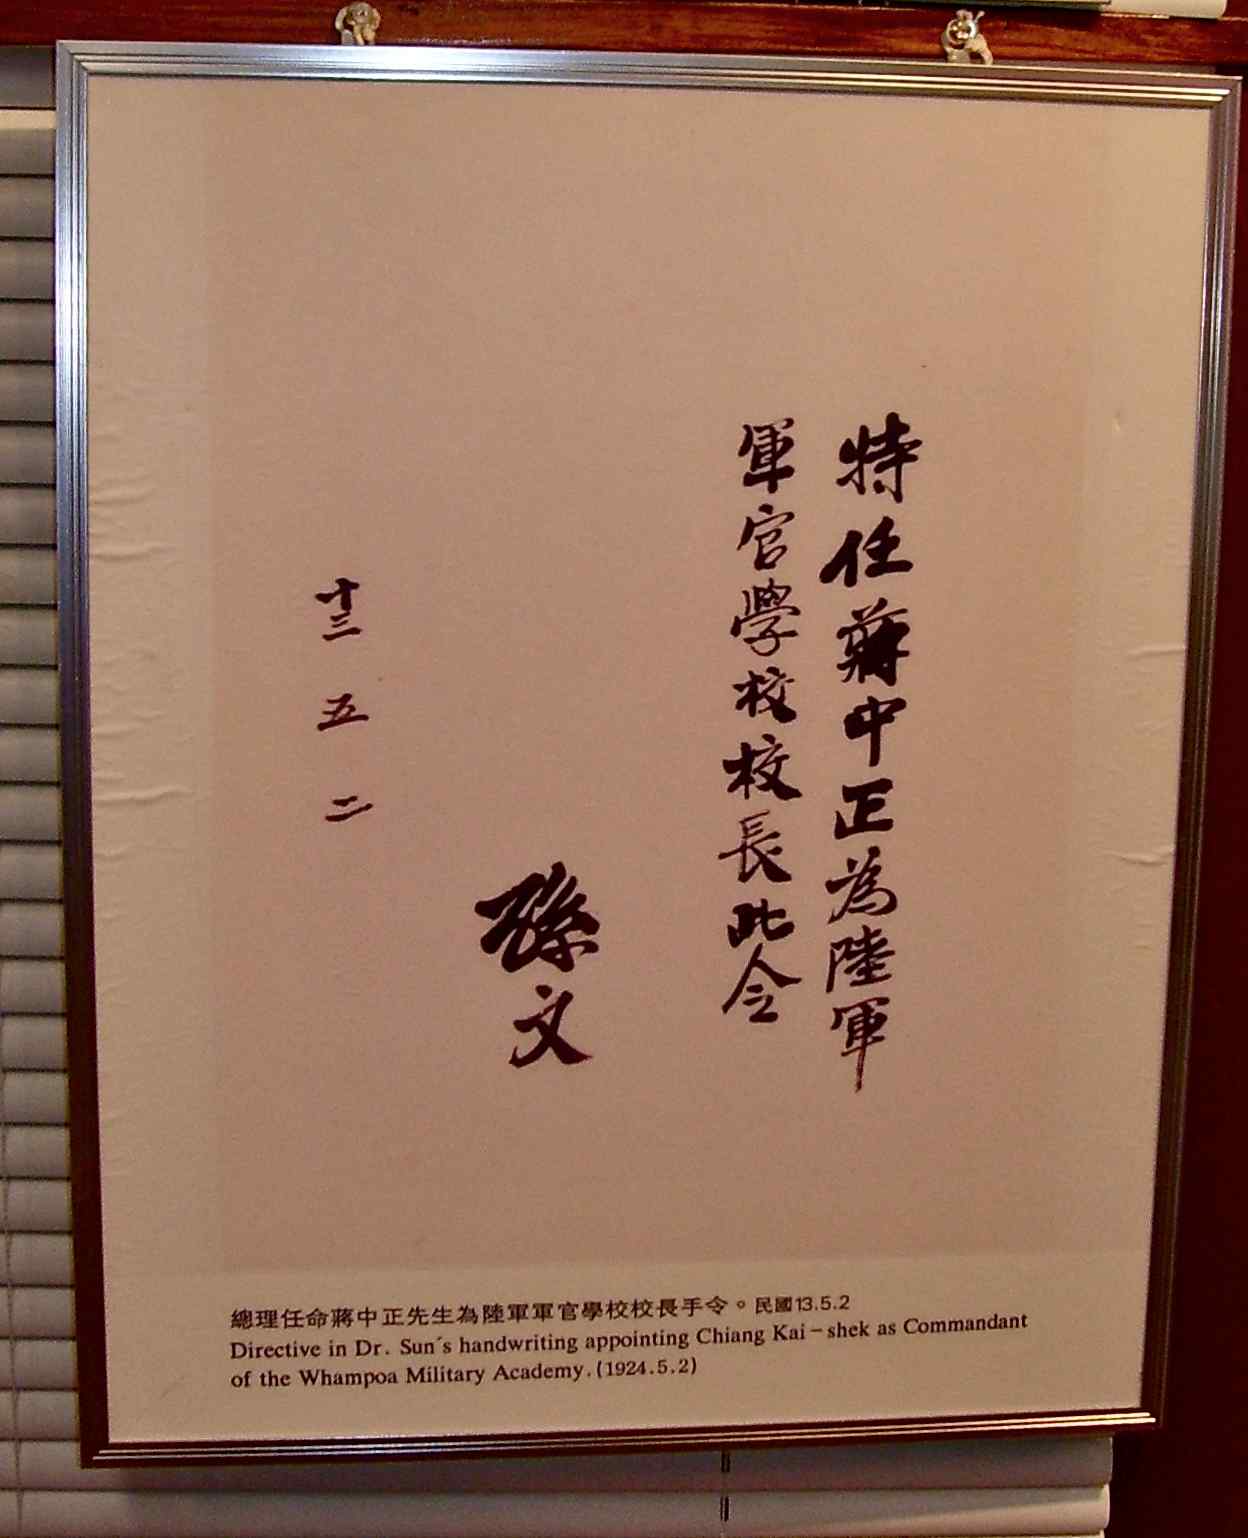 特任蔣中正為陸軍
軍官學校校長此令
孫文
十三 五 二
總理任命蔣中正先生為陸軍軍官學校校長手令。民國13.5.2
Directive in Dr. Sun´s handwriting appointing Chiang Kai-shek as Commandant
of the Whampoa Military Academy.(1924.5.2)